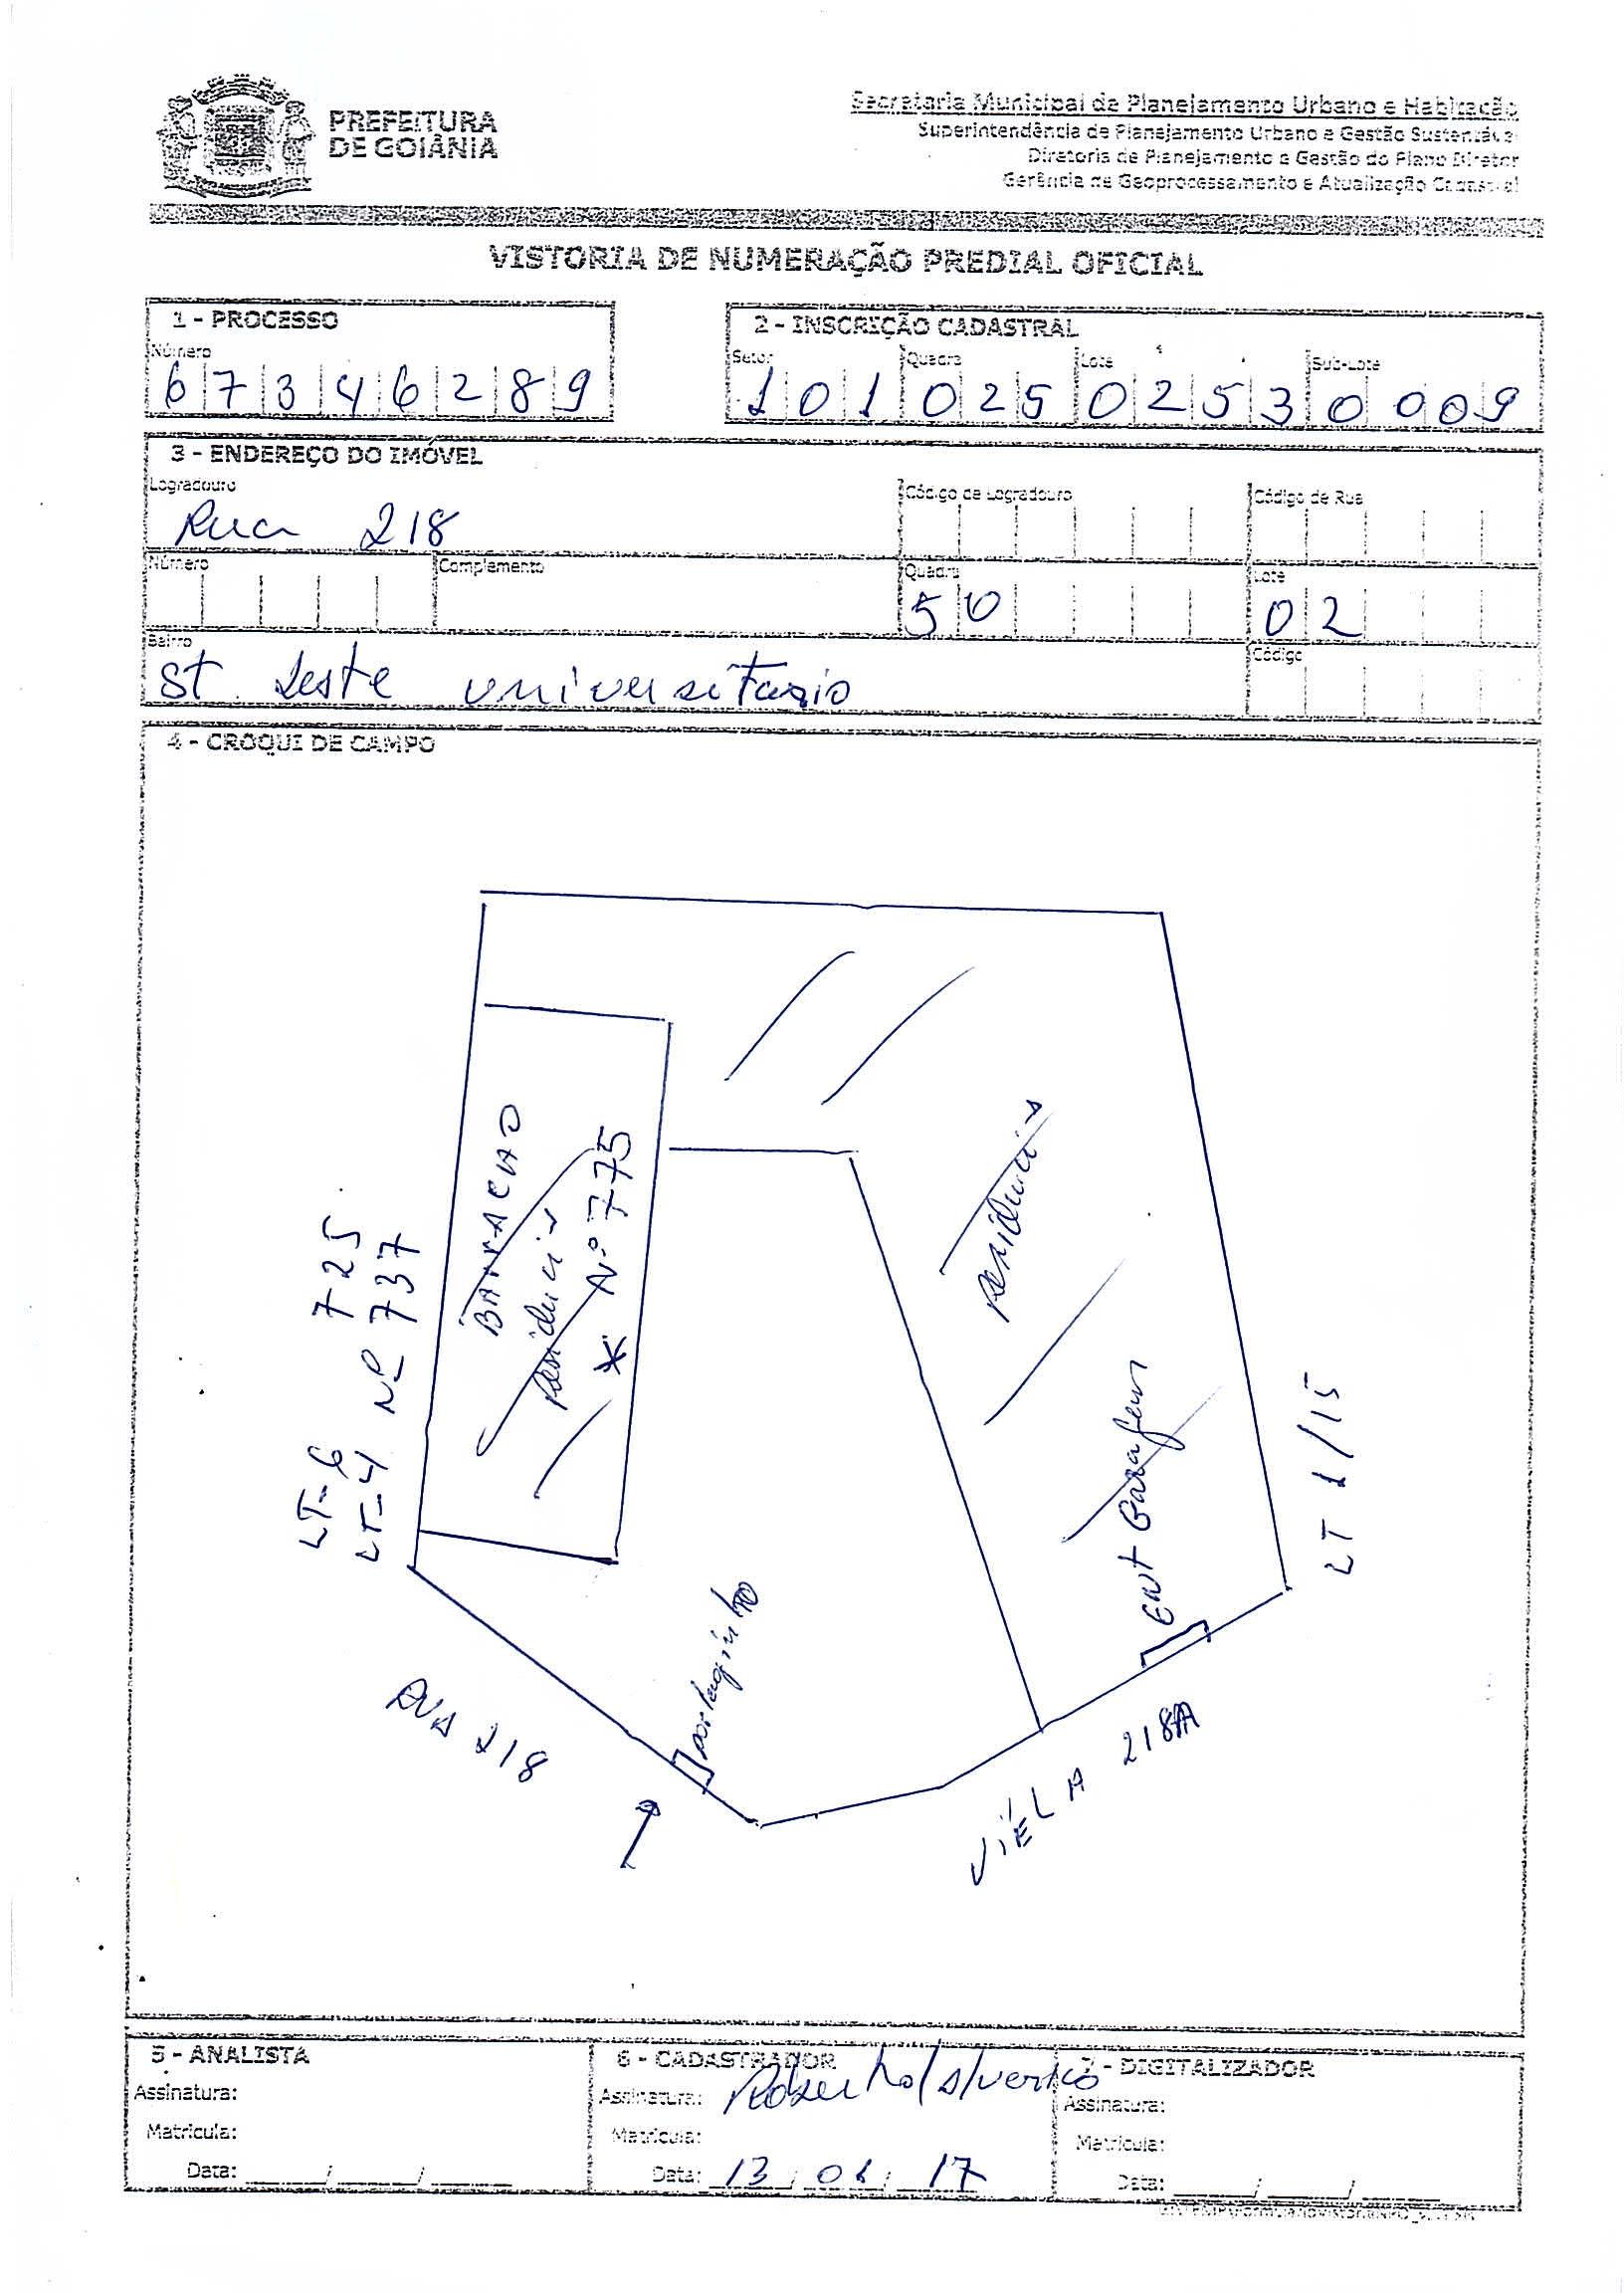 PREFEITURA
DE GOIÂNIA
Secretaria Municipal de Planejamento Urbano e Habitação
Superintendência de Planejamento Urbano e Gestão Sustentável
Diretoria de Planejamento e Gestão do Plano Diretor
Gerência de Geoprocessamento e Atualização Cadastral
VISTORIA DE NUMERAÇÃO PREDIAL OFICIAL
1 - PROCESSO
Número
6 7 3 4 6 2 8 9
2 - INSCRIÇÃO CADASTRAL
Setor Quadra Lote Sub-Lote
1 0 1 0 2 5 0 2 5 3 0 0 0 9
3 - ENDEREÇO DO IMÓVEL
Logradouro Código de Logradouro Código de Rua
Rua 218
Número Complemento Quadra Lote
50 02
Bairro Código
St Leste universitario
4 - CROQUI DE CAMPO
BARRACAO
Residencia
* Nº 775
LT-6 725
LT-4 Nº 737
Residencia
Ent Garagem
LT 1/15
portaozinho
RUA 218
VIELA 218A
5 - ANALISTA
Assinatura:
Matricula:
Data: ____/____/____
6 - CADASTRADOR
Assinatura:
Matricula:
Data: 13 / 01 / 17
7 - DIGITALIZADOR
Assinatura:
Matricula:
Data: ____/____/____